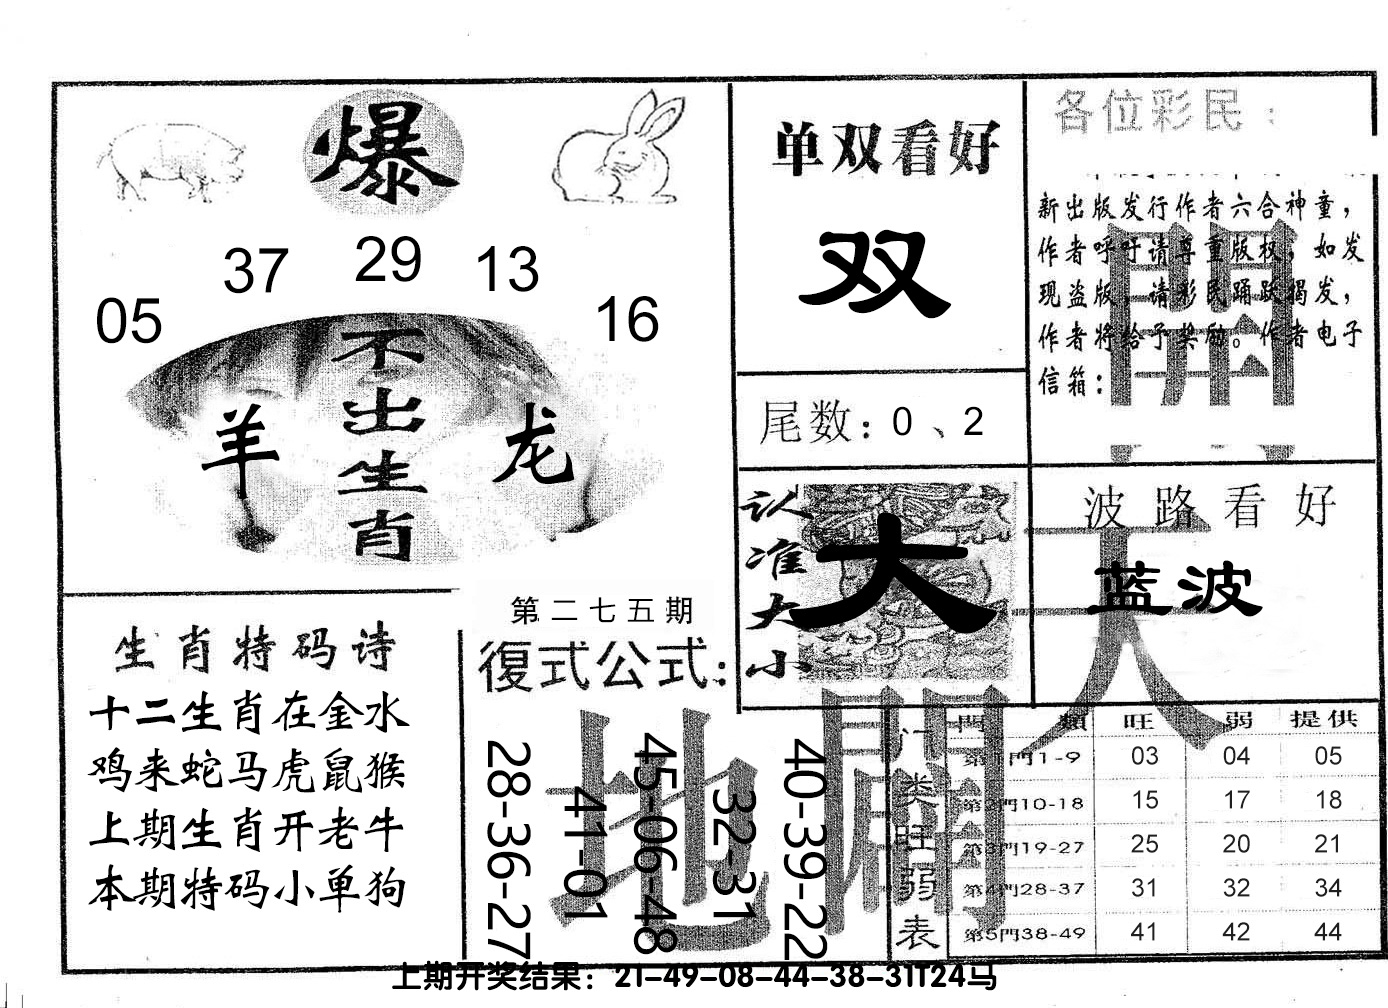 爆
37 29 13
05 16
不出生肖
羊 龙
单双看好
双
尾数：0、2
各位彩民：
新出版发行作者六合神童，
作者呼吁请尊重版权，如发
现盗版，请彩民踊跃揭发，
作者将给予奖励。作者电子
信箱：
認准大小
大
波路看好
蓝波
生肖特码诗
十二生肖在金水
鸡来蛇马虎鼠猴
上期生肖开老牛
本期特码小单狗
第二七五期
復式公式：
28-36-27
41-01
45-06-48
32-31
40-39-22
天
地
開
闢
门类旺弱表
門類 旺 弱 提供
第1門1-9 03 04 05
第2門10-18 15 17 18
第3門19-27 25 20 21
第4門28-37 31 32 34
第5門38-49 41 42 44
上期开奖结果：21-49-08-44-38-31T24马